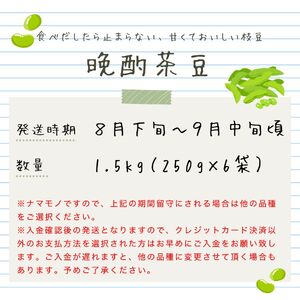 食べだしたら止まらない、甘くておいしい枝豆
晩酌茶豆
発送時期 8月下旬〜9月中旬頃
数量 1.5kg(250g×6袋)
※ナマモノですので、上記の期間留守にされる場合は他の品種
をご選択ください。
※入金確認後の発送となりますので、クレジットカード決済以
外のお支払方法を選択された方はお早めにご入金をお願い致
します。ご入金が遅れますと、他の品種に変更させて頂く場合も
あります。予めご了承ください。